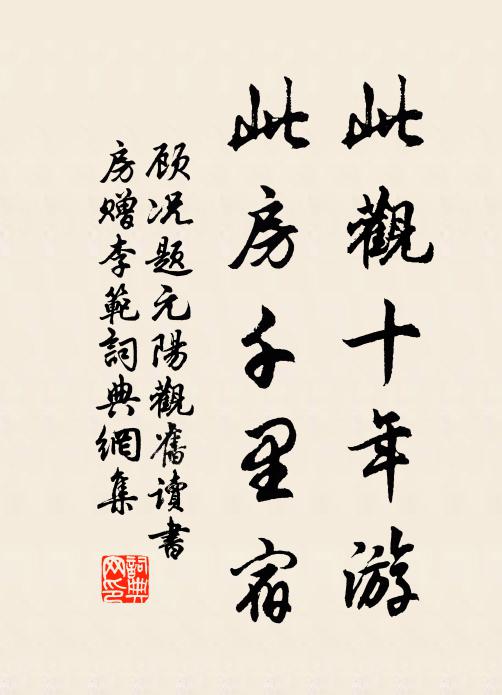 此觀十年游
此房千里宿
顾况题元陽觀舊讀書
房赠李範詞典網集
詞典网印